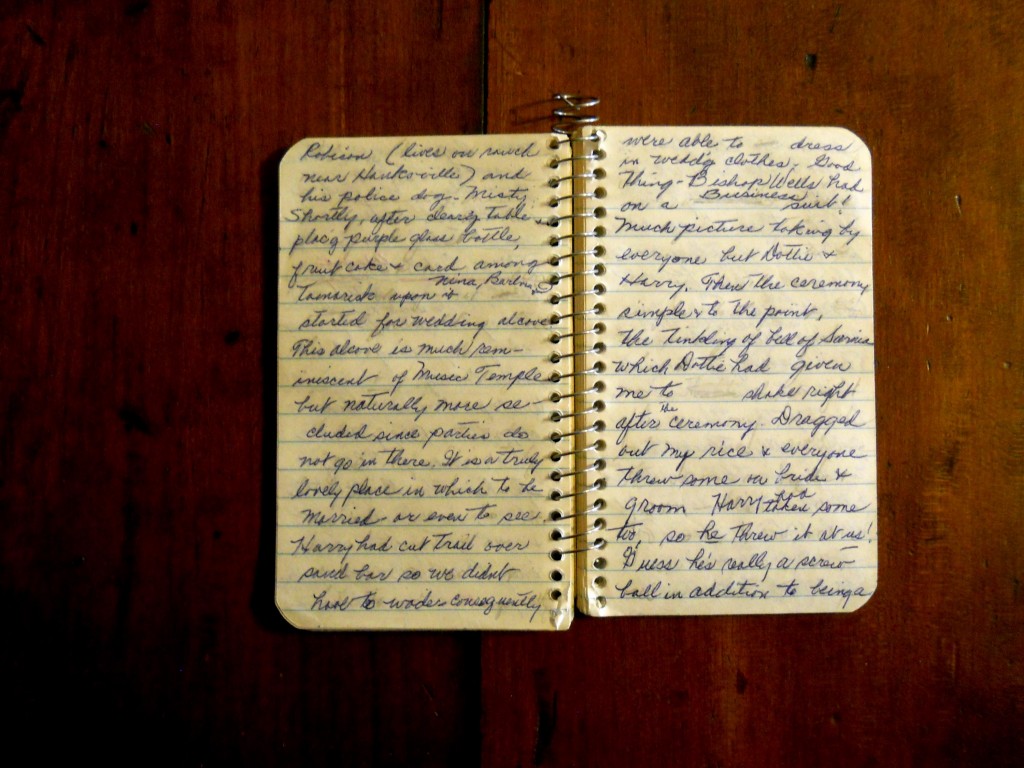 Robison (lives on ranch
near Hanksville) and
his police dog - Misty
Shortly, after clearg table &
placg purple glass bottle,
fruit cake & card among
Nina, Barbra &
Tamarisk upon &
started for wedding alcove
This alcove is much rem-
iniscent of Music Temple
but naturally more se-
cluded since parties do
not go in there. It is a truly
lovely place in which to be
married - or even to see.
Harry had cut trail over
sand bar so we didnt
have to wade - consequently
were able to dress
in weddg clothes. Good
Thing - Bishop Wells had
on a Business suit!
Much picture taking by
everyone but Dottie &
Harry. Then the ceremony
simple & to the point,
the tinkling of bell of Sarnia
which Dottie had given
me to shake right
after the ceremony. Dragged
out my rice & everyone
threw some on bride &
groom Harry had taken some
too, so he threw it at us!
Guess he's really a screw-
ball in addition to being a